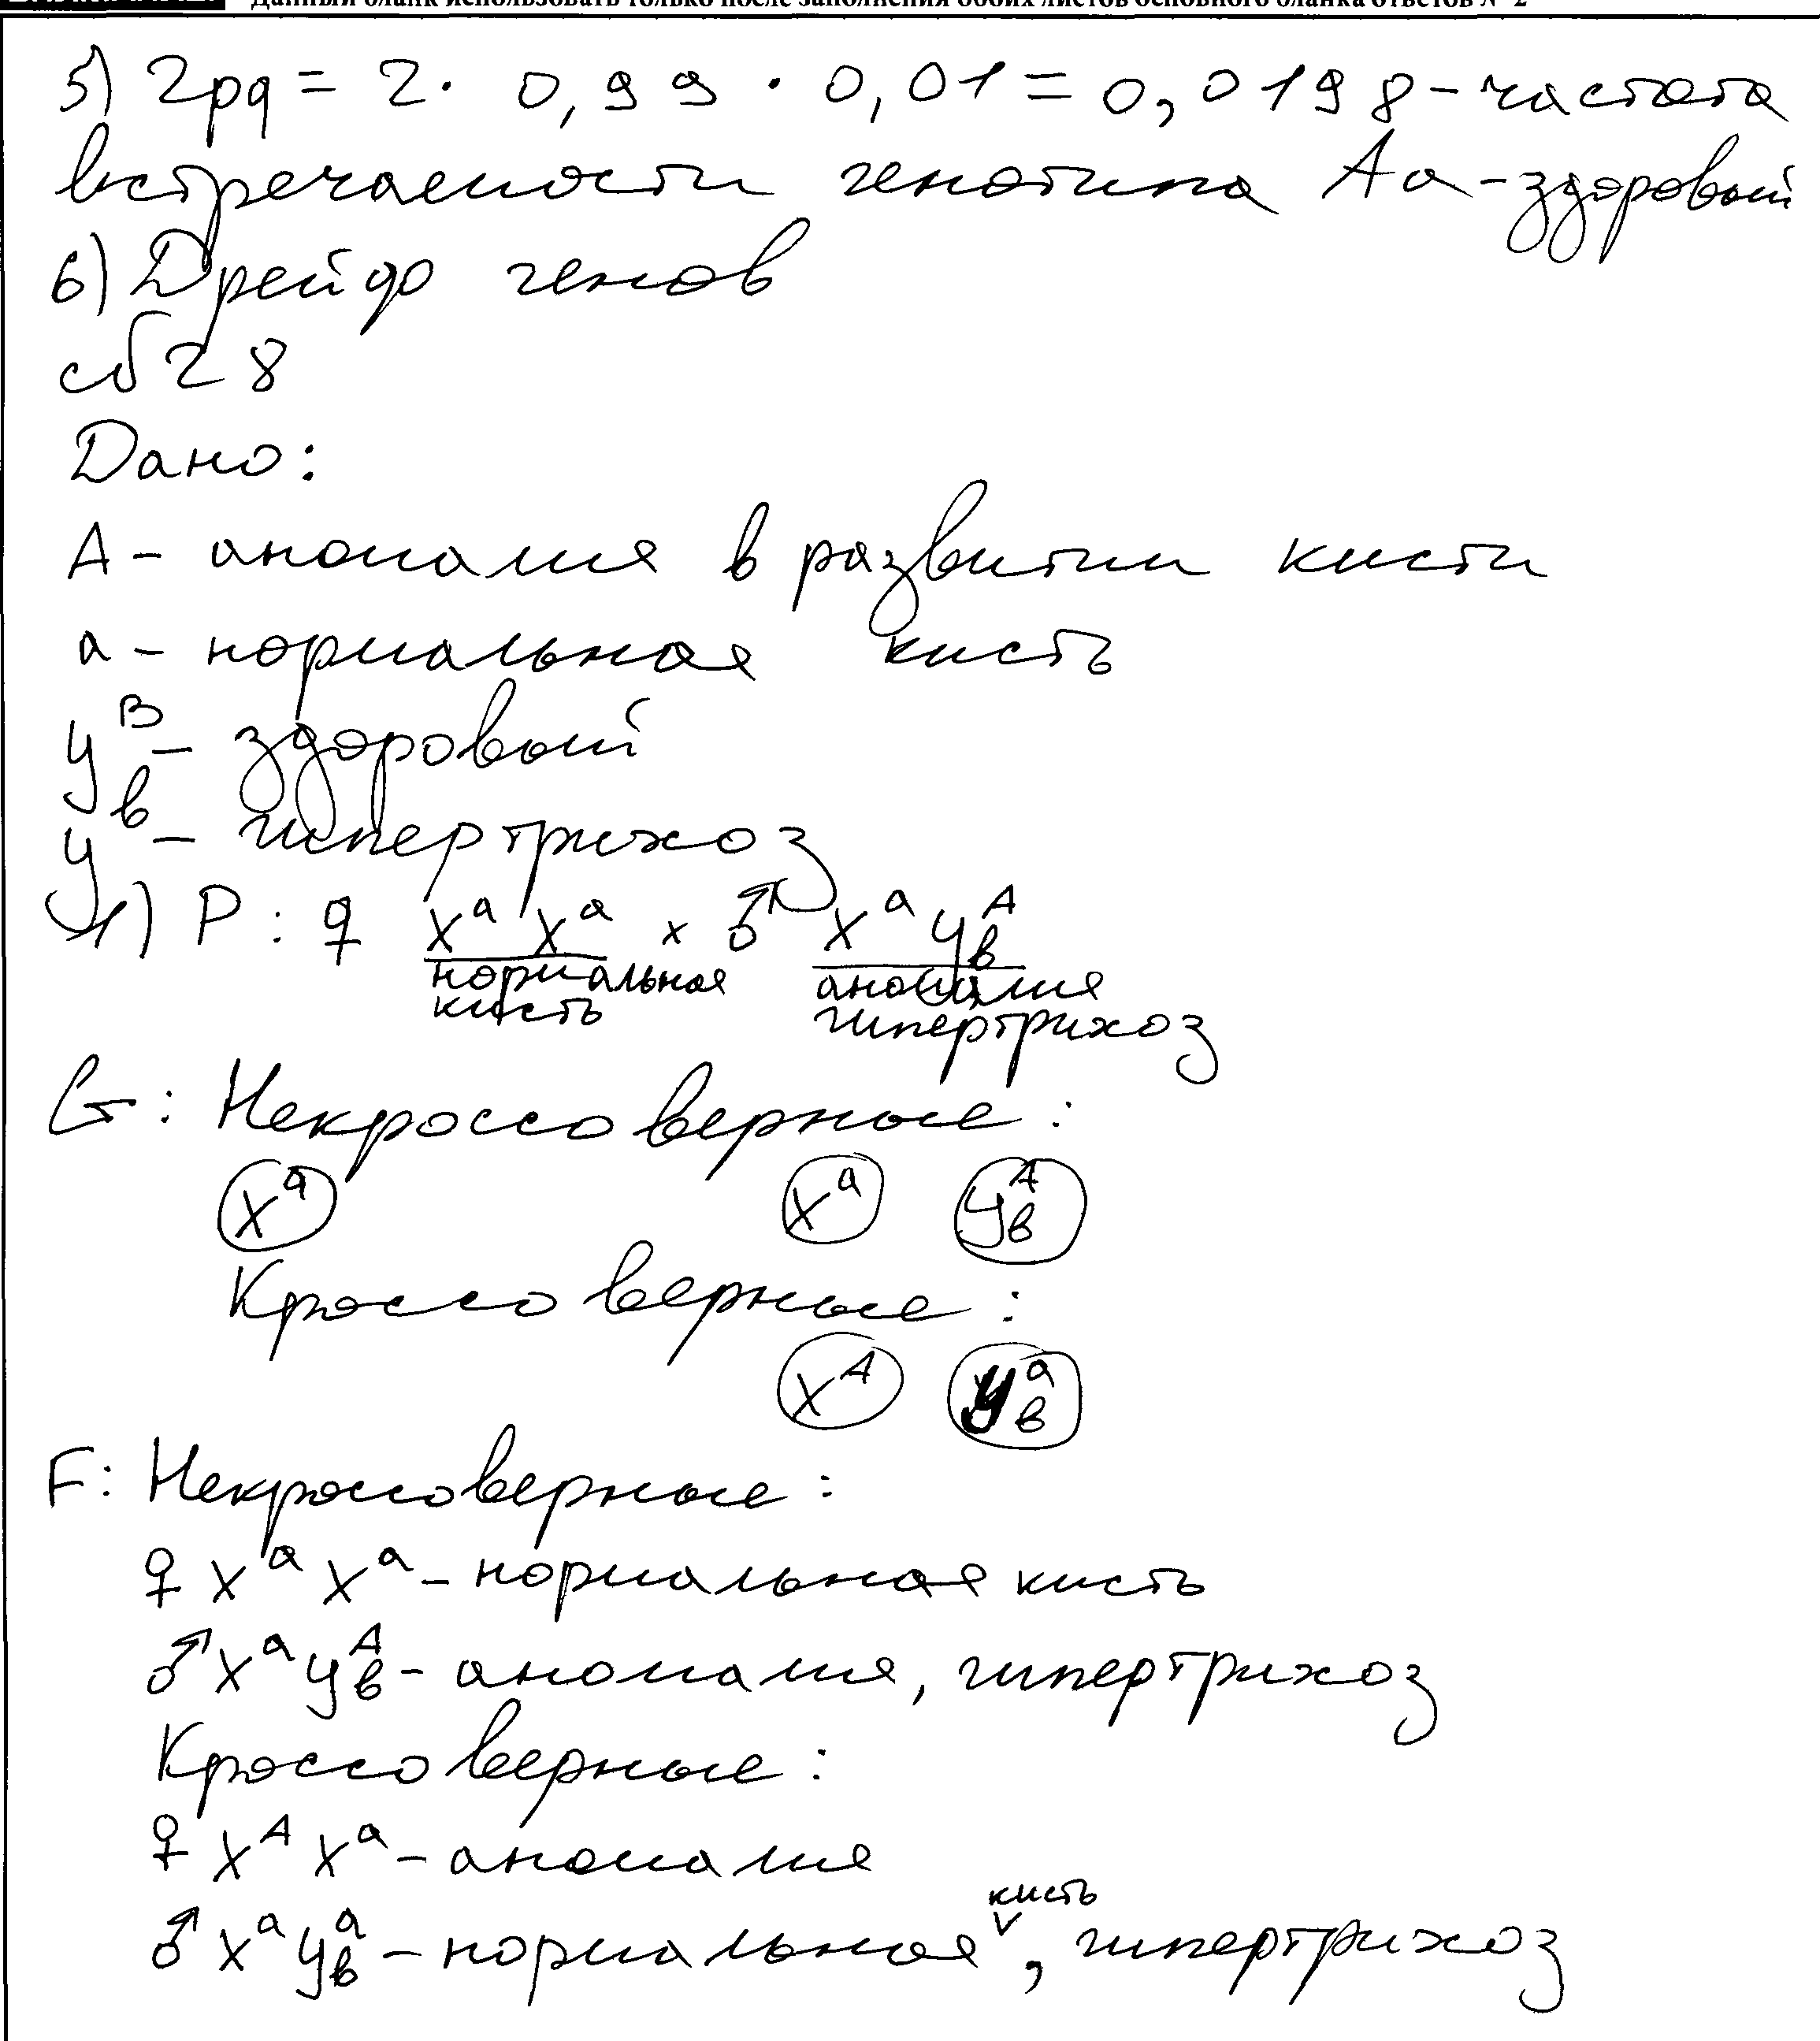 Данный бланк использовать только после заполнения обоих листов основного бланка ответов № 2
5) 2pq = 2 · 0,99 · 0,01 = 0,0198 - частота
встречаемости генотипа Aa - здоровый
6) Дрейф генов
№28
Дано:
A - аномалия в развитии кисти
a - нормальная кисть
y^B - здоровый
y^b - гипертрихоз
1) P: ♀ X^a X^a × ♂ X^a y^A_b
нормальная кисть аномалия гипертрихоз
G: Некроссоверные:
X^a X^a y^A_b
Кроссоверные:
X^A y^a_b
F: Некроссоверные:
♀ X^a X^a - нормальная кисть
♂ X^a y^A_b - аномалия, гипертрихоз
Кроссоверные:
♀ X^A X^a - аномалия
♂ X^a y^a_b - нормальная кисть, гипертрихоз